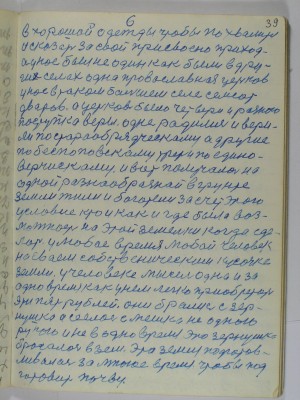 6
39
в хорошой одежды чтобы похвали
и сказер за свой
ауное были не одну как были в дру-
гих селах одна православная церков
у нас в каком большем селе семсот
дворов. а церков было четыре и разного
поступка веры одне радилия и вери-
ли постарообрядческому а другие
по беспоповскому трети по едино-
верческому. и вот получалось на
одной разнообразной в групе
земли жили и богатели за счет этого
условие кто и как и где была воз-
можность на этой земельки когда сде-
лат и любое время любой человек
на своем собственическим кусочке
земли. у человека мысль одна и за
одно время как у нем легко приобрутся
эти пят рублей. они брались с зер-
нушка а сеялос с мешка не одною
рукою и не в одно время это зернушко
бросалос в зем. эта земля подготов-
ливалас за многое время чтобы под
готовит почву